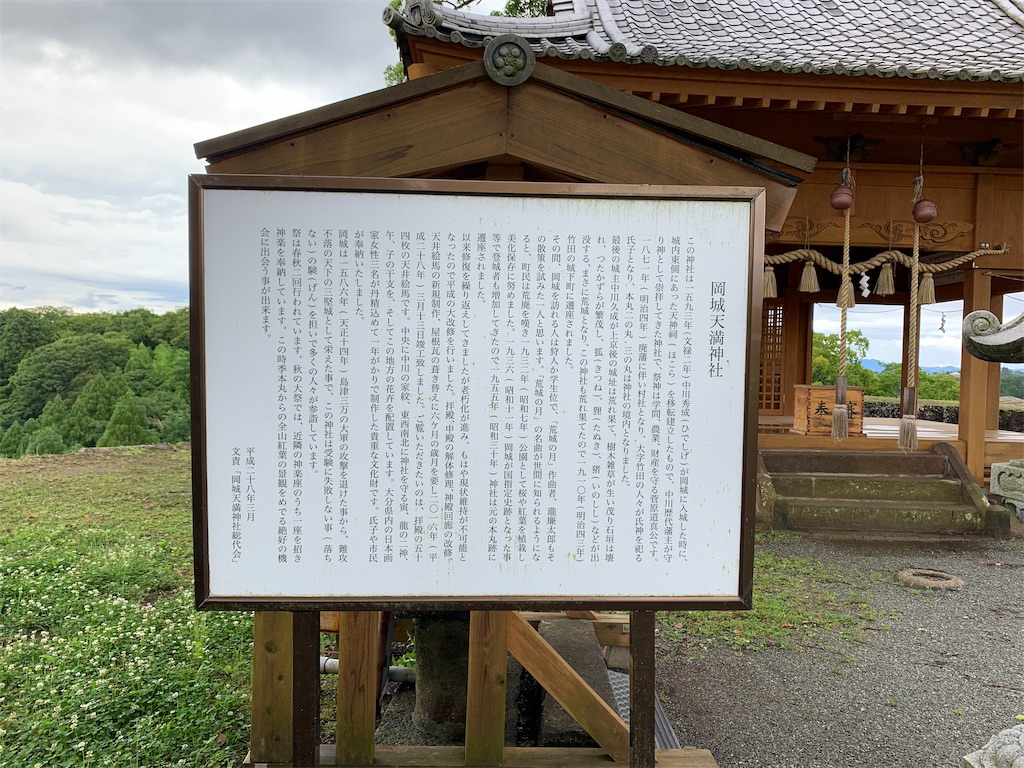 岡城天満神社
この神社は一五九三年（文禄二年）中川秀成（ひでしげ）が岡城に入城した時に、
城内東側にあった天神祠（ほこら）を移転建立したもので、中川歴代藩主が守
り神として崇拝してきた神社で、祭神は学問、農業、財産を守る菅原道真公です。
一八七一年（明治四年）廃藩に伴い村社となり、大字竹田の人々が氏神を祀る
氏子となり、本丸・二の丸・三の丸は神社の境内となりました。
最後の城主中川久成が上京後の城址は荒れ果て、樹木雑草が生い茂り石垣は壊
れ、つたかずらが繁茂し、狐（きつね）、狸（たぬき）、猪（いのしし）などが出
没する、まさに荒城となり、この神社も荒れ果てたので一九一〇年（明治四三年）
竹田の城下町に遷座されました。
その間、岡城を訪れる人は狩人か学生位で、「荒城の月」作曲者、瀧廉太郎もそ
の散策を試みた一人と思います。「荒城の月」の名曲が世間に知られるようにな
ると、町民は荒廃を嘆き一九三二年（昭和七年）公園として桜や紅葉を植栽し
美化保存に努めました。一九三六（昭和十一年）岡城が国指定史跡となった事
等で登城者も増加してきたので一九五五年（昭和三十年）神社は元の本丸跡に
遷座されました。
以来修復を繰り返えしてきましたが老朽化が進み、もはや現状維持が不可能と
なったので平成の大改修を行いました。拝殿、中殿の解体修理、神殿回廊の改修、
天井絵馬の新規制作、屋根瓦の葺き替えに六ケ月の歳月を要し二〇一六年（平
成二十八年）二月十三日竣工致しました。ご覧いただきたいのは、拝殿の五十
四枚の天井絵馬です。中央に中川の家紋、東西南北に神社を守る寅、龍の二神、
午、子の干支を、そしてこの地方の花卉を配置しています。大分県内の日本画
家女性三名が丹精込めて一年がかりで制作した貴重な文化財です。氏子や市民
が奉納いたしました。
岡城は一五八六年（天正十四年）島津三万の大軍の攻撃を退けた事から、難攻
不落の天下の三堅城として栄えた事で、この神社は受験に失敗しない事（落ち
ない）の験（げん）を担いで多くの人々が参詣しています。
祭は春秋二回行われています。秋の大祭では、近隣の神楽座のうち一座を招き
神楽を奉納しています。この時季本丸からの全山紅葉の景観をめでる絶好の機
会に出会う事が出来ます。
平成二十八年三月
文責「岡城天満神社総代会」
奉